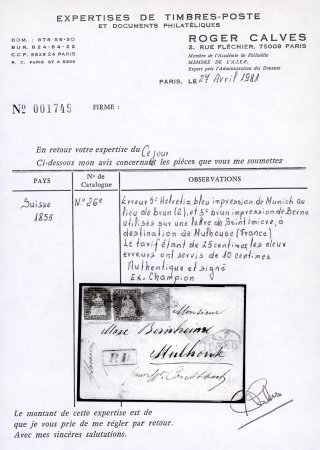 EXPERTISES DE TIMBRES-POSTE
ET DOCUMENTS PHILATÉLIQUES
DOM : 878-56-30
BUR. 824-84-23
C.C.P.
R. C. PARIS 57 A
ROGER CALVES
2, RUE FLÉCHIER, 75009 PARIS
Membre de l'Académie de Philatélie
MEMBRE DE L'A.I.E.P.
Expert près l'Administration des Douanes
PARIS, LE 27 Avril 1981
No 001749
FIRME :
En retour votre expertise du Ce jour
Ci-dessous mon avis concernant les pièces que vous me soumettez
PAYS
No de Catalogue
OBSERVATIONS
Suisse
1855
No 26e
Erreur 5c Helvetia bleu impression de Munich au
lieu de brun (2), et 5c brun impression de Berne
utilisés sur une lettre de Saint Imier, à
destination de Mulhouse (France)
Le tarif étant de 25 centimes, les deux
erreurs ont servis de 10 centimes
Authentique et signé
Ex. Champion
Monsieur
Max Bernheim
Mulhouse
P.D.
Le montant de cette expertise est de
que je vous prie de me régler par retour.
Avec mes sincères salutations.